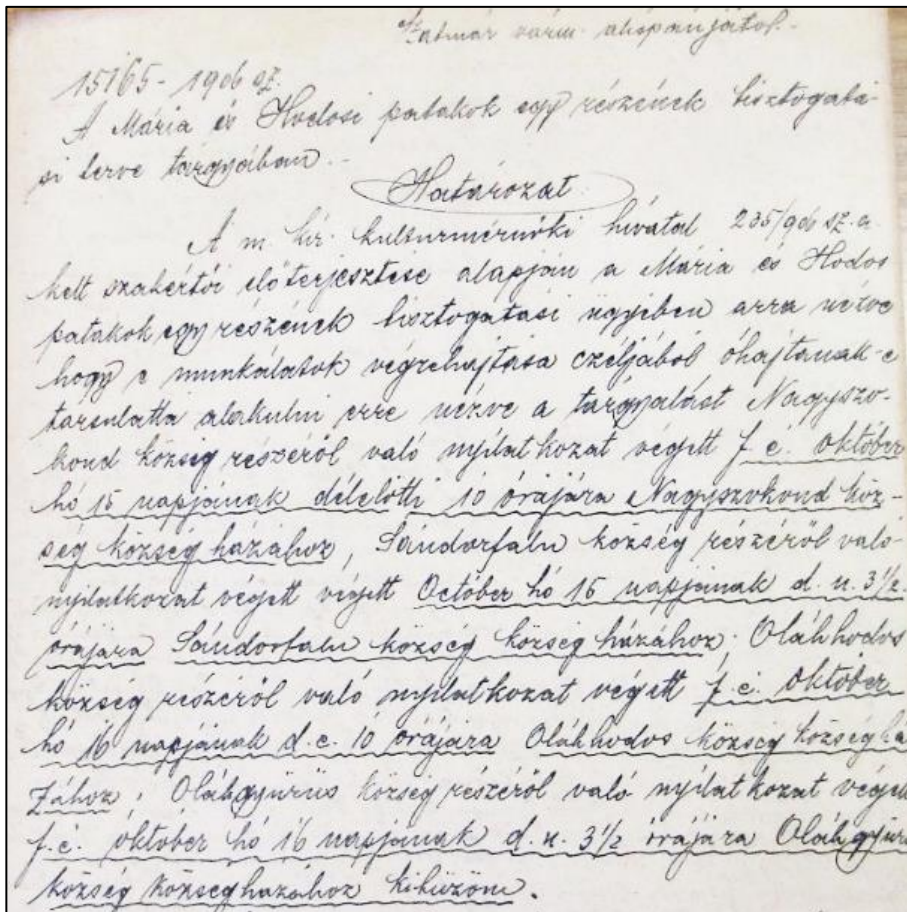 Szatmár várm. alispánjától.
15165 - 1906 sz.
A Mária és Hodosi patakok egy részének tisztogatá-
si terve tárgyában.
Határozat
A m. kir. kulturmérnöki hivatal 235/906 sz. a.
kelt szakértői előterjesztése alapján a Mária és Hodos
patakok egy részének tisztogatási ügyében arra nézve
hogy e munkálatok végrehajtása czéljából óhajtanak-e
társulattá alakulni erre nézve a tárgyalást Nagyszo-
kond község részéről való nyilatkozat végett f. é. október
hó 15 napjának délelőtti 10 órájára Nagyszokond köz-
ség község házához, Sándorfalu község részéről való
nyilatkozat végett végett October hó 15 napjának d. u. 3 1/2
órájára Sándorfalu község község házához. Oláhhodos
község részéről való nyilatkozat végett f. é. október
hó 16 napjának d. e. 10 órájára Oláhhodos község község há
zához, Oláhgyürüs község részéről való nyilatkozat végett
f. é. október hó 16 napjának d. u. 3 1/2 órájára Oláhgyürü
község községházához kitűzöm.